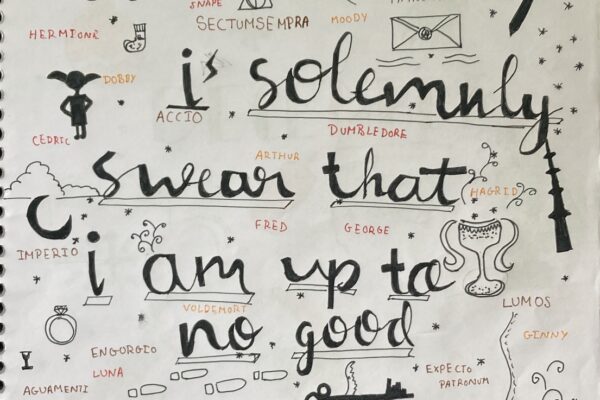 SNAPE
SECTUMSEMPRA
MOODY
HERMIONE
i solemnly
DOBBY
ACCIO
DUMBLEDORE
CEDRIC
ARTHUR
swear that
HAGRID
FRED GEORGE
IMPERIO
i am up to
VOLDEMORT
LUMOS
no good
GINNY
ENGORGIO
LUNA
EXPECTO
PATRONUM
AGUAMENTI